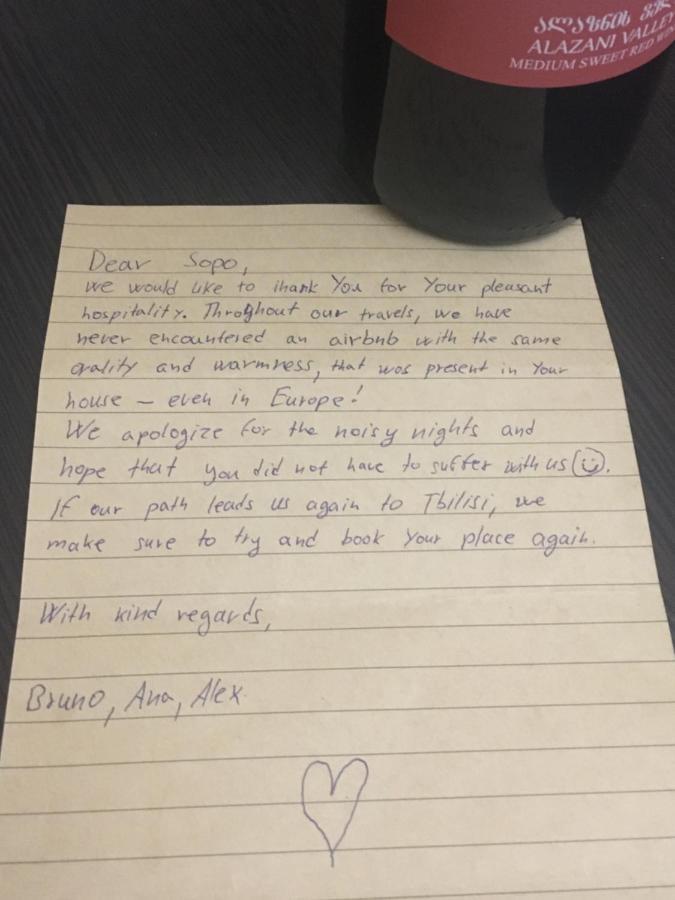 ალაზნის ველ
ALAZANI VALLEY
MEDIUM SWEET RED WIN
Dear Sopo,
we would like to thank You for Your pleasant
hospitality. Throghout our travels, we have
never encountered an airbnb with the same
qality and warmness, that was present in Your
house – even in Europe!
We apologize for the noisy nights and
hope that you did not have to suffer with us☺.
If our path leads us again to Tbilisi, we
make sure to try and book Your place again.
With kind regards,
Bruno, Ana, Alex